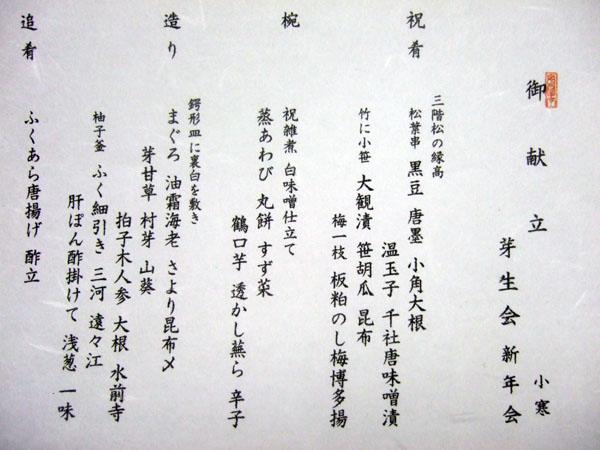 御献立
小寒
芽生会 新年会
祝肴
三階松の縁高
松葉串 黒豆 唐墨 小角大根
温玉子 千社唐味噌漬
竹に小笹 大観漬 笹胡瓜 昆布
梅一枝 板粕のし梅博多揚
椀
祝雑煮 白味噌仕立て
蒸あわび 丸餅 すず菜
鶴口芋 透かし蕪ら 辛子
造り
鍔形皿に裏白を敷き
まぐろ 油霜海老 さより昆布〆
芽甘草 村芽 山葵
拍子木人参 大根 水前寺
柚子釜 ふく細引き 三河 遠々江
肝ぽん酢掛けて 浅葱 一味
追肴
ふくあら唐揚げ 酢立